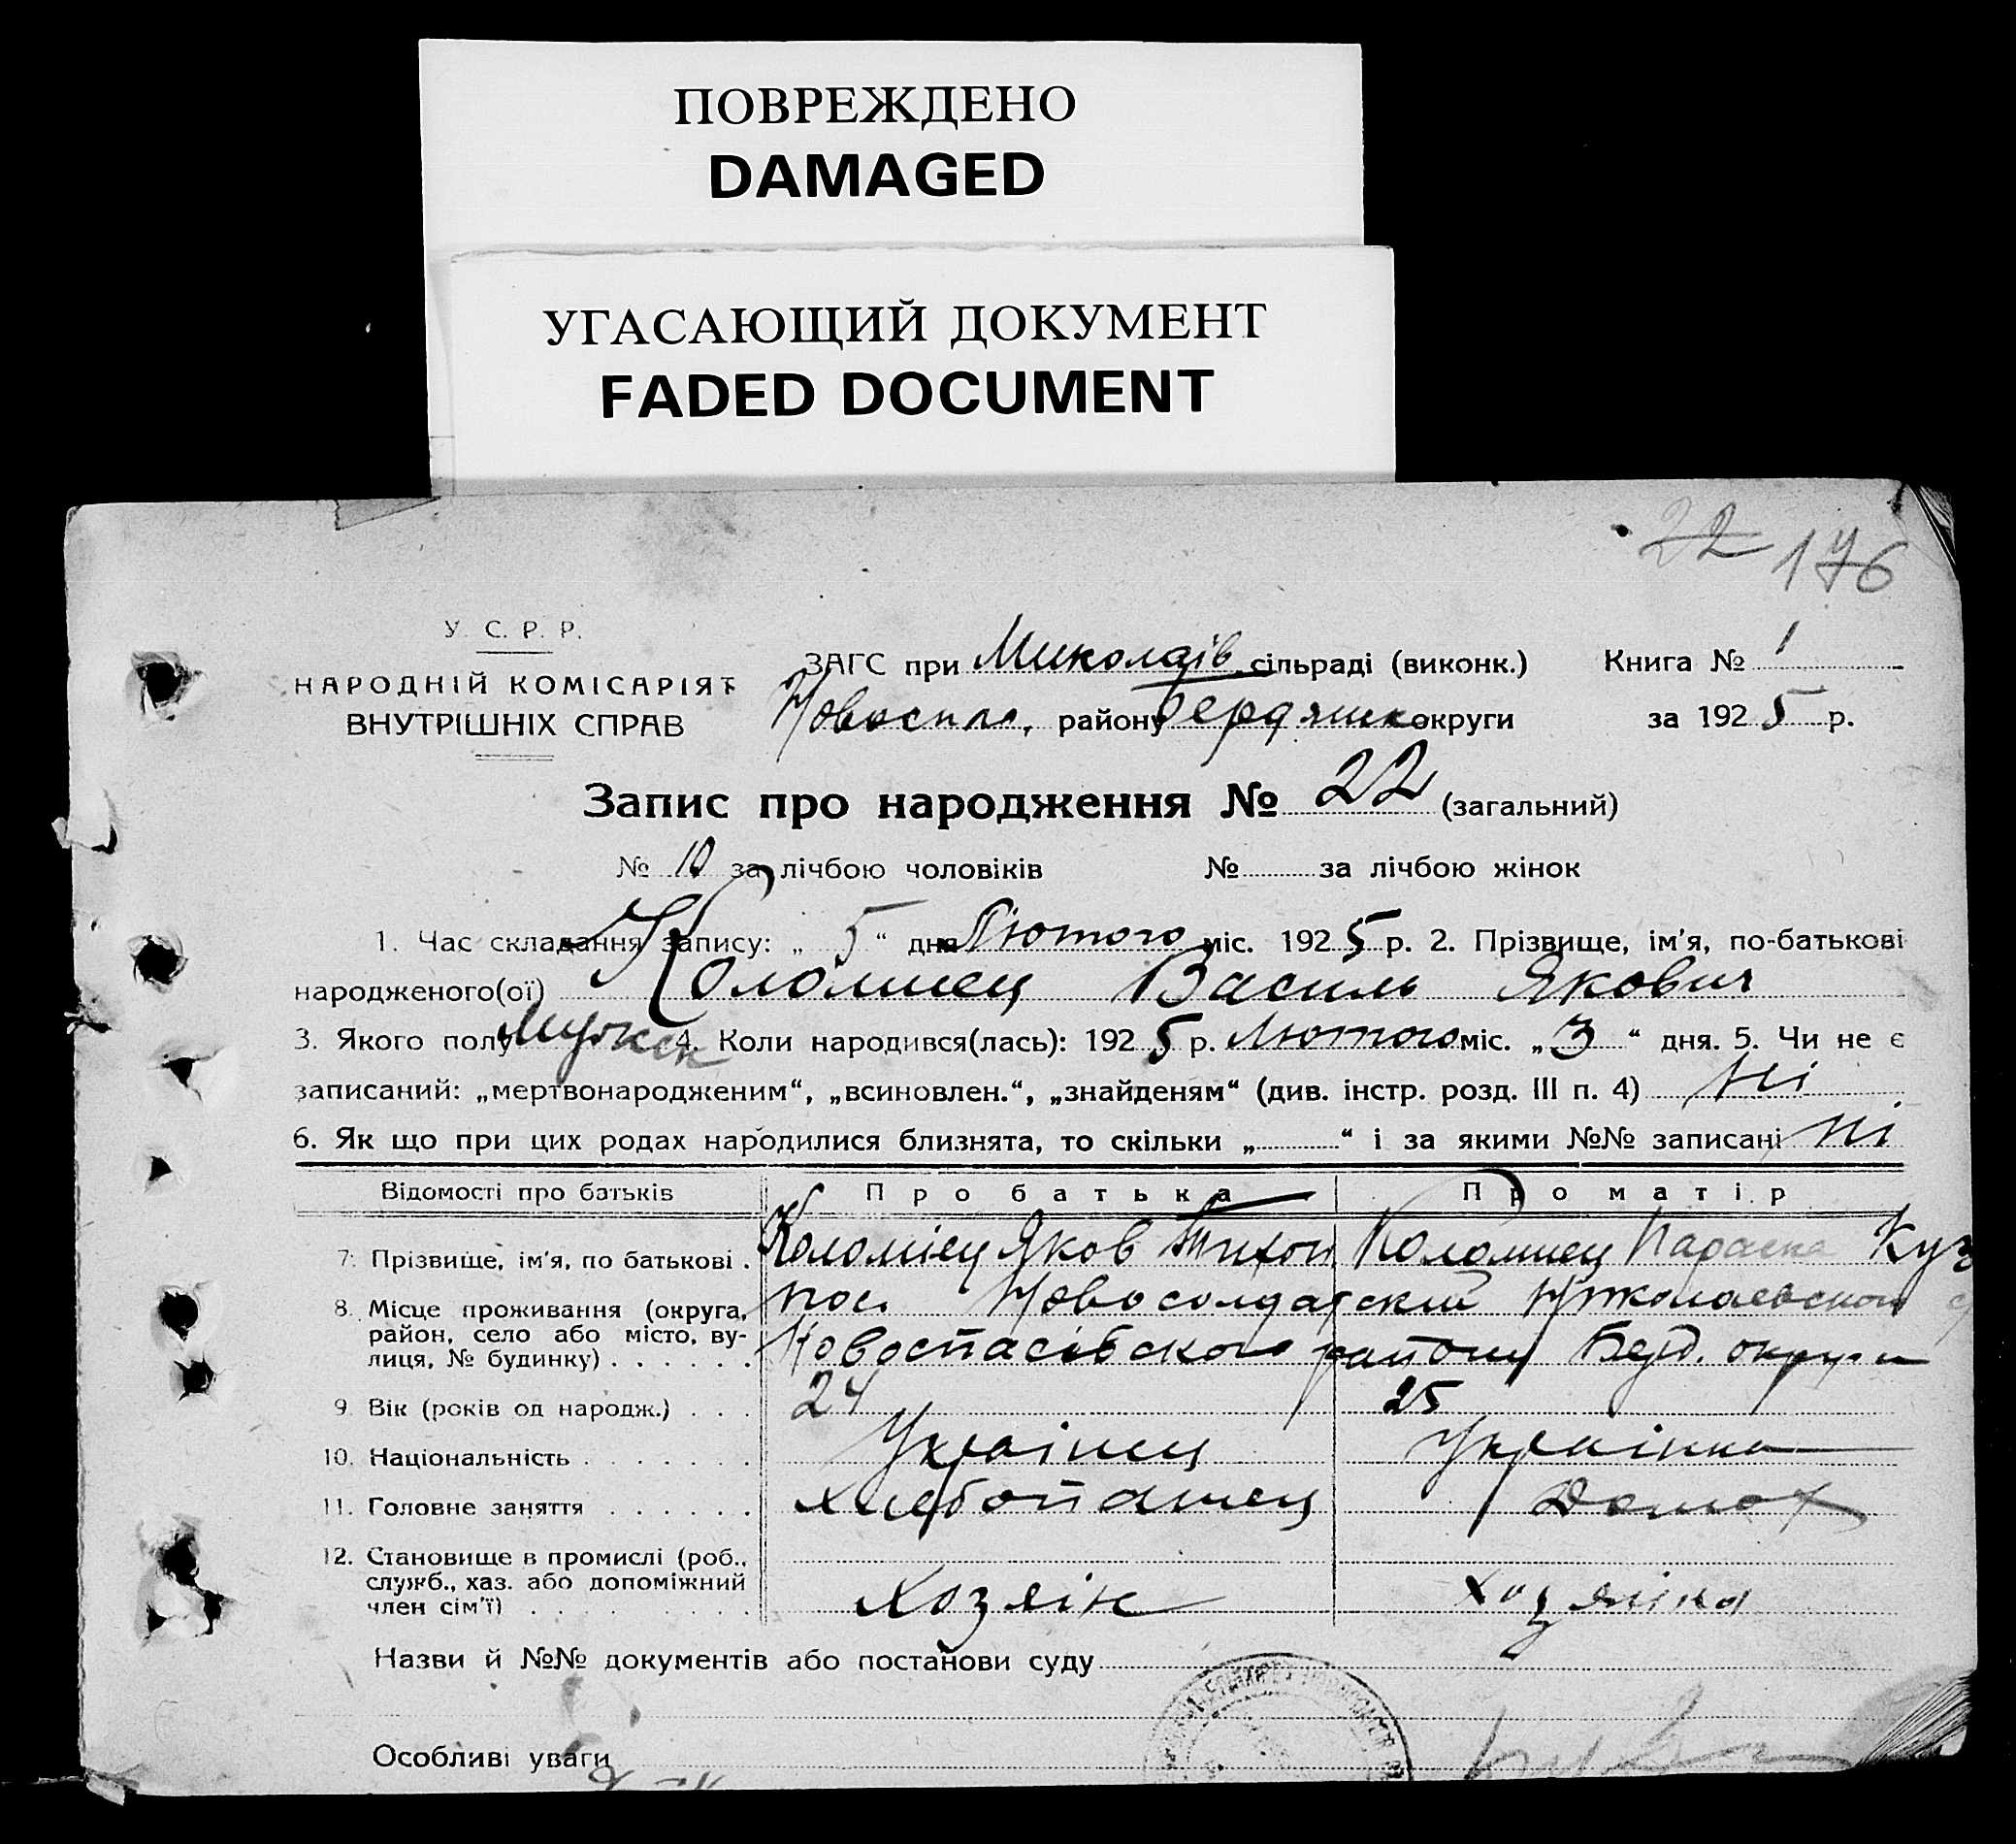 ПОВРЕЖДЕНО
DAMAGED
УГАСАЮЩИЙ ДОКУМЕНТ
FADED DOCUMENT
22 176
У. С. Р. Р.
НАРОДНІЙ КОМІСАРІЯТ
ВНУТРІШНІХ СПРАВ
ЗАГС при Миколаїв сільраді (виконк.) Книга № 1
Новоспас. району Бердянсь округи за 1925 р.
Запис про народження № 22 (загальний)
№ 10 за лічбою чоловіків № за лічбою жінок
1. Час складання запису: „ 5 “ дня Лютого міс. 1925 р. 2. Прізвище, ім'я, по-батькові
народженого(ої) Коломиец Василь Якович
3. Якого полу Мужск 4. Коли народився(лась): 1925 р. Лютого міс. „ 3 “ дня. 5. Чи не є
записаний: „мертвонародженим“, „всиновлен.“, „знайденям“ (див. інстр. розд. III п. 4) Ні
6. Як що при цих родах народилися близнята, то скільки „ “ і за якими №№ записані Ні
Відомості про батьків Про батька Про матір
7. Прізвище, ім'я, по батькові . Коломіец Яков Тихон. Коломиец Параска Куз
8. Місце проживання (округа, пос. Новосолдатскій Николаевского
район, село або місто, ву- Новоспасівского району Берд. округи
лиця, № будинку) . . . . . .
9. Вік (років од народж.) . . . 24 25
10. Національність . . . . . . . Українец Українка
11. Головне заняття . . . . . . хлебопашец Домох
12. Становище в промислі (роб.,
служб., хаз. або допоміжний
член сім'ї) . . . . . . . . . Хозяїн хозяїна
Назви й №№ документів або постанови суду
Особливі уваги